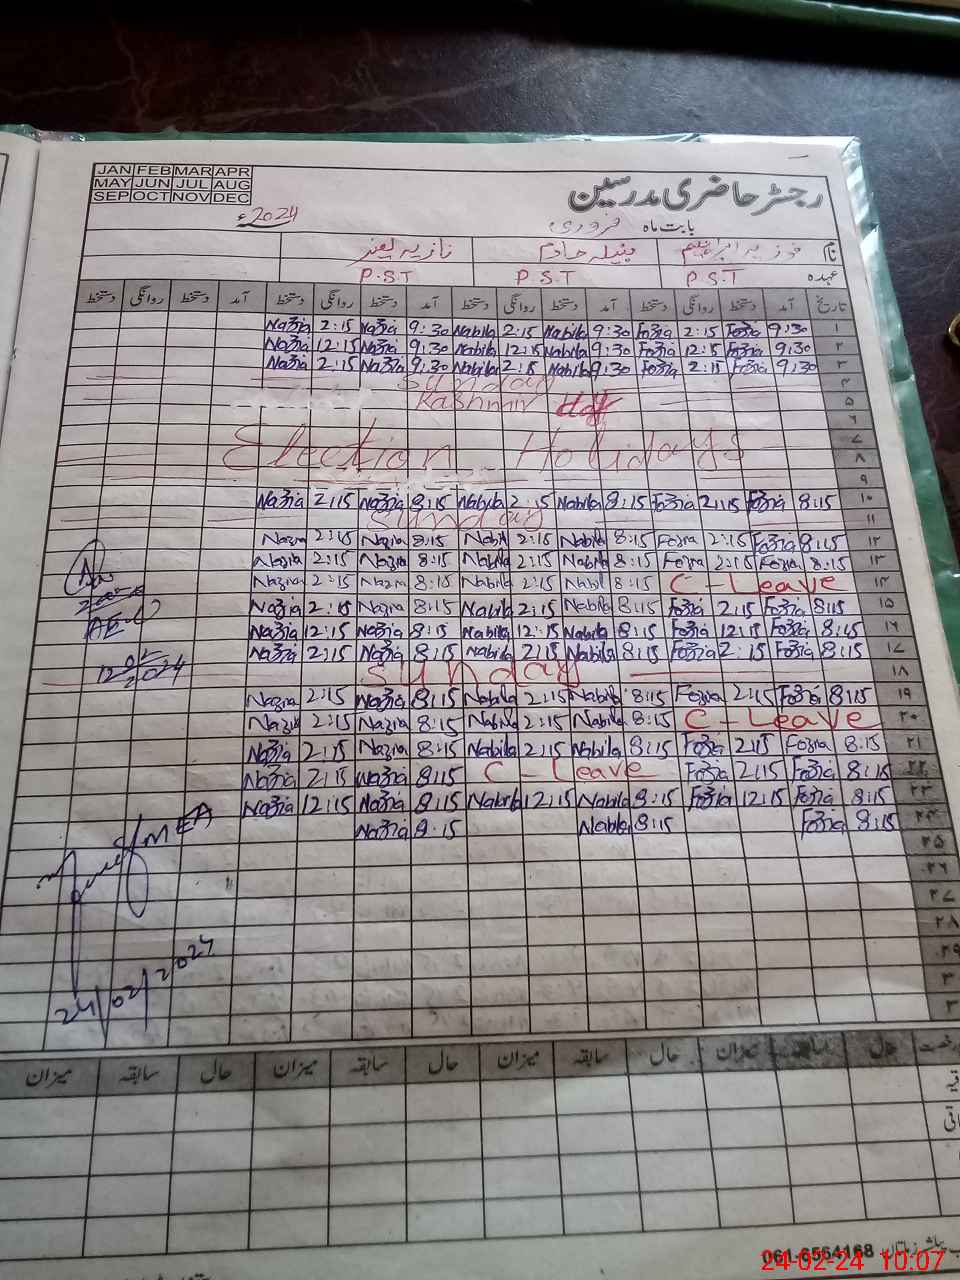 JAN FEB MAR APR
MAY JUN JUL AUG
SEP OCT NOV DEC
رجسٹر حاضری مدرسین
بابت ماہ فروری 2024ء
نام فوزیہ ابراہیم نبیلہ خادم نازیہ
عہدہ P.S.T P.S.T P.S.T
تاریخ آمد دستخط روانگی دستخط آمد دستخط روانگی دستخط آمد دستخط روانگی دستخط آمد دستخط روانگی دستخط
۱ 9:30 Fozia 2:15 Fozia 9:30 Nabila 2:15 Nabila 9:30 Nazia 2:15 Nazia
۲ 9:30 Fozia 12:15 Fozia 9:30 Nabila 12:15 Nabila 9:30 Nazia 12:15 Nazia
۳ 9:30 Fozia 2:15 Fozia 9:30 Nabila 2:15 Nabila 9:30 Nazia 2:15 Nazia
۴ Sunday
۵ Kashmir day
۶
۷ Election Holidays
۸
۹
۱۰ 8:15 Fozia 2:15 Fozia 8:15 Nabila 2:15 Nabila 8:15 Nazia 2:15 Nazia
۱۱ Sunday
۱۲ 8:15 Fozia 2:15 Fozia 8:15 Nabila 2:15 Nabil 8:15 Nazia 2:15 Nazia
۱۳ 8:15 Fozia 2:15 Fozia 8:15 Nabila 2:15 Nabila 8:15 Nazia 2:15 Nazia
۱۴ C - Leave 8:15 Nabil 2:15 Nabila 8:15 Nazia 2:15 Nazia
۱۵ 8:15 Fozia 2:15 Fozia 8:15 Nabila 2:15 Nabila 8:15 Nazia 2:15 Nazia
۱۶ 8:15 Fozia 12:15 Fozia 8:15 Nabila 12:15 Nabila 8:15 Nazia 12:15 Nazia
۱۷ 8:15 Fozia 2:15 Fozia 8:15 Nabila 2:15 Nabila 8:15 Nazia 2:15 Nazia
۱۸ Sunday
۱۹ 8:15 Fozia 2:15 Fozia 8:15 Nabila 2:15 Nabila 8:15 Nazia 2:15 Nazia
۲۰ C - Leave 8:15 Nabila 2:15 Nabila 8:15 Nazia 2:15 Nazia
۲۱ 8:15 Fozia 2:15 Fozia 8:15 Nabila 2:15 Nabila 8:15 Nazia 2:15 Nazia
۲۲ 8:15 Fozia 2:15 Fozia C - Leave 8:15 Nazia 2:15 Nazia
۲۳ 8:15 Fozia 12:15 Fozia 8:15 Nabila 12:15 Nabila 8:15 Nazia 12:15 Nazia
۲۴ 8:15 Fozia 8:15 Nabila 8:15 Nazia
۲۵
۲۶
۲۷
۲۸
۲۹
MEA
24/02/2024
حال سابقہ میزان حال سابقہ میزان حال سابقہ میزان
061-6564168
24-02-24 10:07